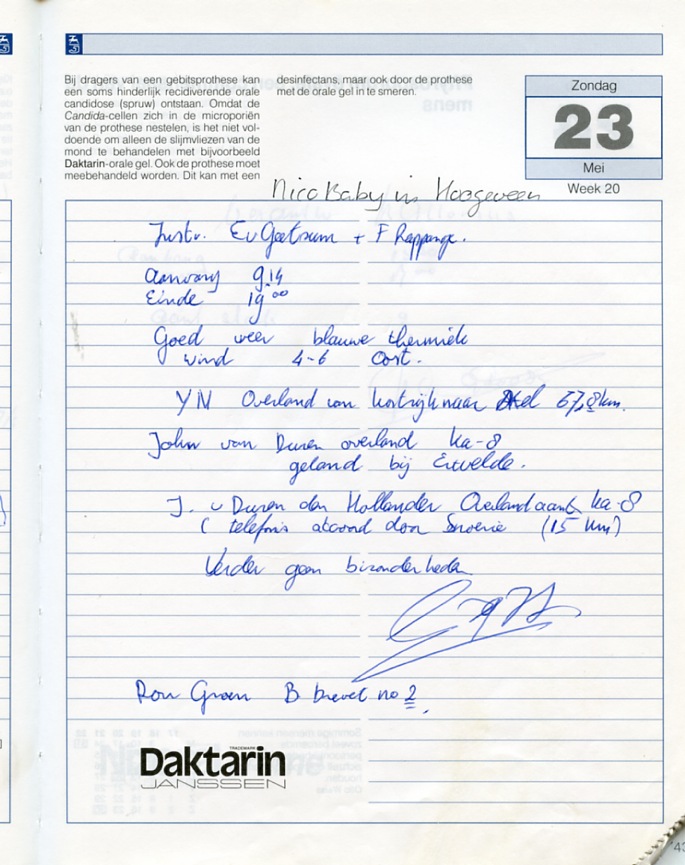 Bij dragers van een gebitsprothese kan
een soms hinderlijk recidiverende orale
candidose (spruw) ontstaan. Omdat de
Candida-cellen zich in de microporiën
van de prothese nestelen, is het niet vol-
doende om alleen de slijmvliezen van de
mond te behandelen met bijvoorbeeld
Daktarin-orale gel. Ook de prothese moet
meebehandeld worden. Dit kan met een
desinfectans, maar ook door de prothese
met de orale gel in te smeren.
Zondag
23
Mei
Week 20
Nico Baby in Hoogeveen
Instr. Ev Geetsum + F Rappange.
Aanvang 9.14
Einde 19.00
Goed weer blauwe thermiek
wind 4-6 Oost.
YN Overland van Kortrijk naar 67,8 km.
John van Duren overland ka-8
geland bij Ertvelde.
J. v Duren den Hollander Overland ka-8
( telefonis accoord door (15 km)
Verder geen bizonderheden
Ron Groen B brevet no 2.
TRADEMARK
Daktarin
JANSSEN